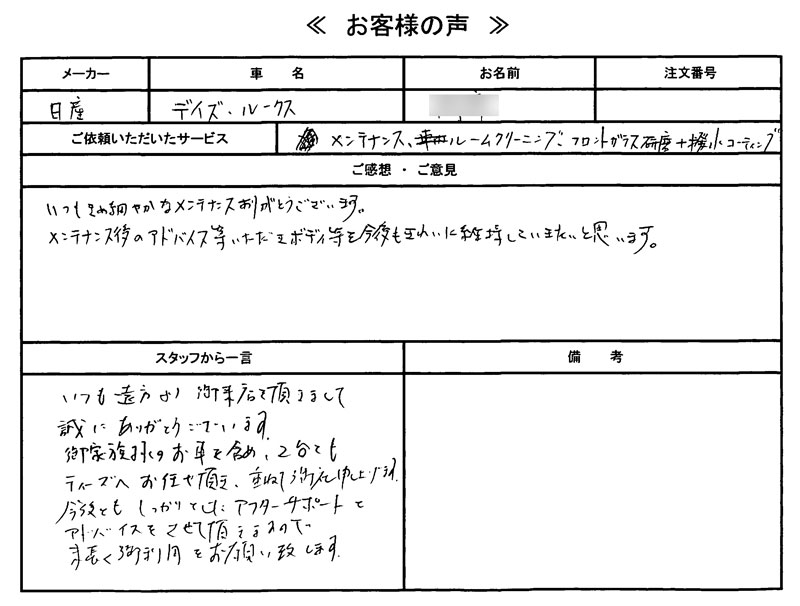 ≪ お客様の声 ≫
メーカー 車名 お名前 注文番号
日産 デイズ・ルークス
ご依頼いただいたサービス メンテナンス、ルームクリーニング、フロントガラス研磨+撥水コーティング
ご感想・ご意見
いつもきめ細やかなメンテナンスありがとうございます。
メンテナンス後のアドバイス等いただきボディ等を今後もきれいに維持していきたいと思います。
スタッフから一言 備考
いつも遠方より御来店頂きまして
誠にありがとうございます。
御家族様のお車を含め、2台とも
ティーズへお任せ頂き、重ねて御礼申し上げます。
今後とも しっかりとした アフターサポートと
アドバイスをさせて頂きますので
末長く御利用をお願い致します。